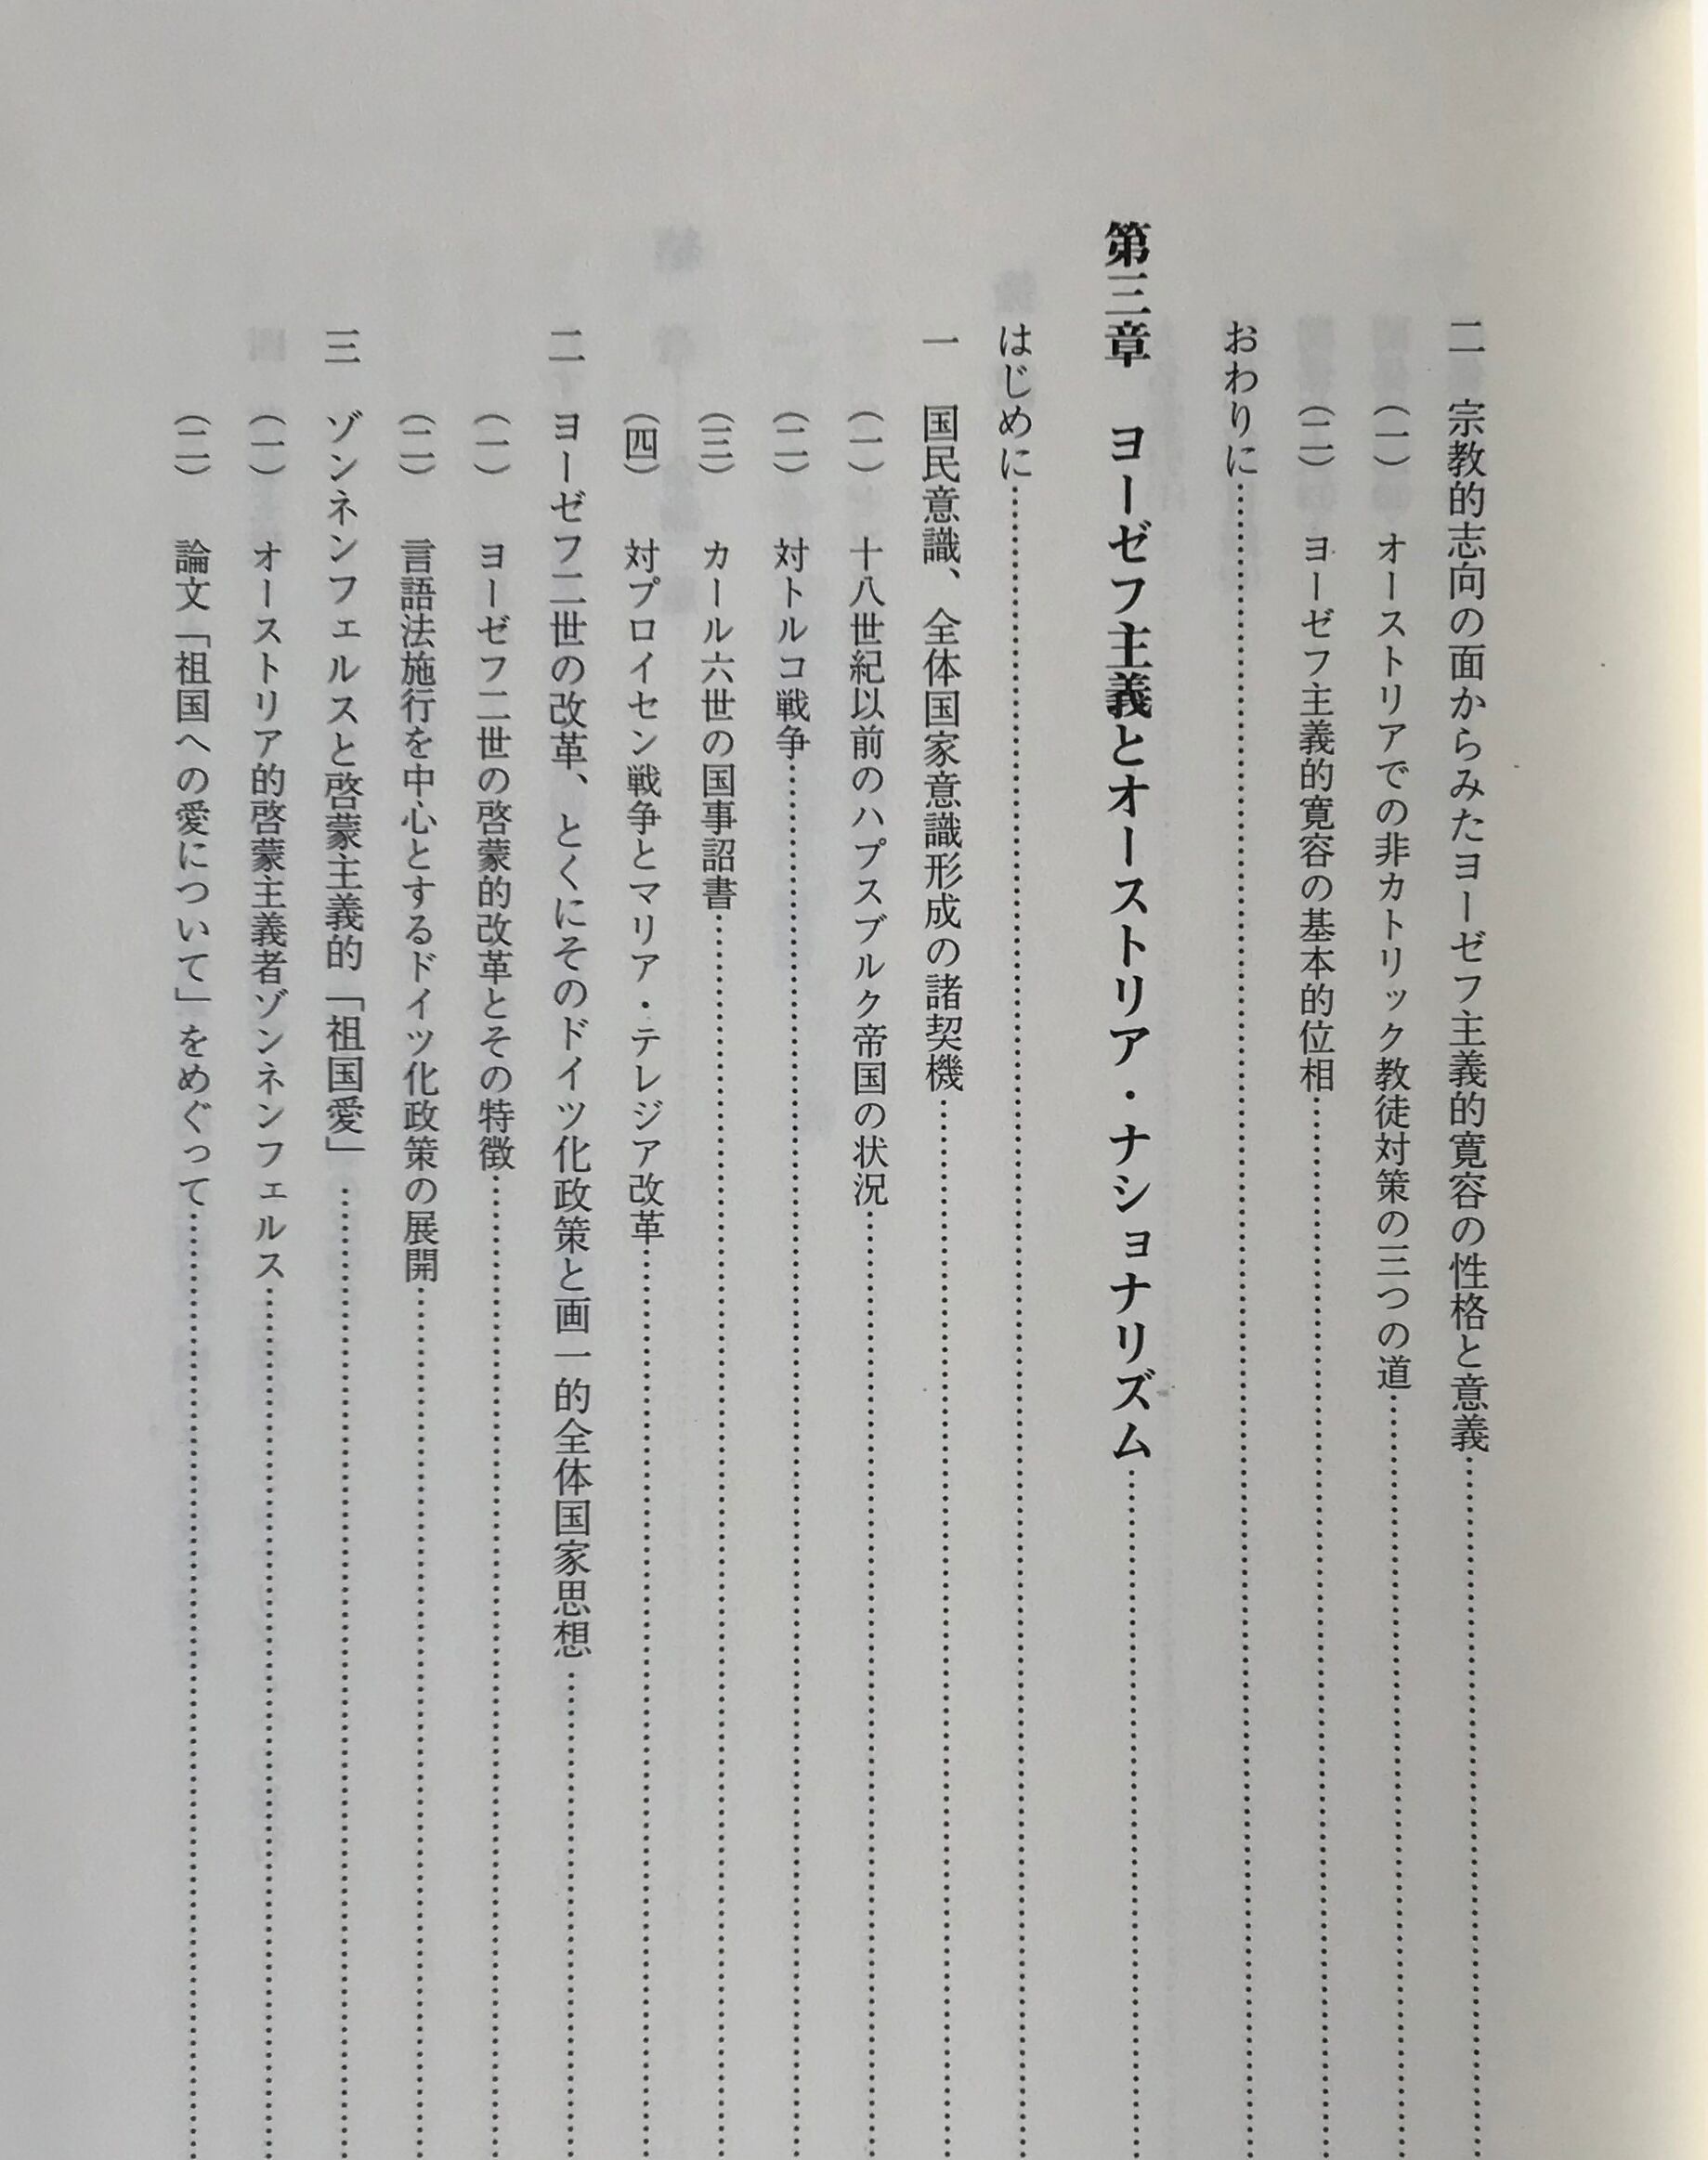 二　宗教的志向の面からみたヨーゼフ主義的寛容の性格と意義……
（一）　オーストリアでの非カトリック教徒対策の三つの道……
（二）　ヨーゼフ主義的寛容の基本的位相……
おわりに……
第三章　ヨーゼフ主義とオーストリア・ナショナリズム……
はじめに……
一　国民意識、全体国家意識形成の諸契機……
（一）　十八世紀以前のハプスブルク帝国の状況……
（二）　対トルコ戦争……
（三）　カール六世の国事詔書……
（四）　対プロイセン戦争とマリア・テレジア改革……
二　ヨーゼフ二世の改革、とくにそのドイツ化政策と画一的全体国家思想……
（一）　ヨーゼフ二世の啓蒙的改革とその特徴……
（二）　言語法施行を中心とするドイツ化政策の展開……
三　ゾンネンフェルスと啓蒙主義的「祖国愛」……
（一）　オーストリア的啓蒙主義者ゾンネンフェルス……
（二）　論文「祖国への愛について」をめぐって……